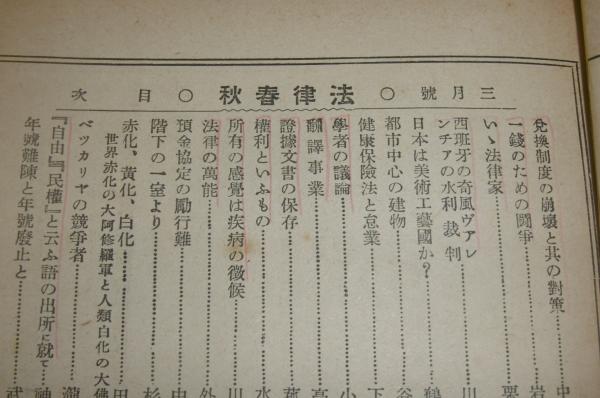 三月號 ○ 法律春秋 ○ 目次
兌換制度の崩壞と其の對策……中
一錢のための鬪爭……岩
いゝ法律家……栗
西班牙の奇風ヴアレンチアの水利裁判……川
日本は美術工藝國か?……鶴
都市中心の建物……谷
健康保險法と怠業……下
學者の議論……小
飜譯事業……高
證據文書の保存……
權利といふもの……水
所有の感覺は疾病の徴候……川
法律の萬能……外
預金協定の勵行難……中
階下の一室より……杉
赤化、黄化、白化……田
世界赤化の大阿修羅軍と人類白化の大佛
ベツカリヤの競爭者……瀧
『自由』『民權』と云ふ語の出所に就て……神
年號難陳と年號廢止と……武